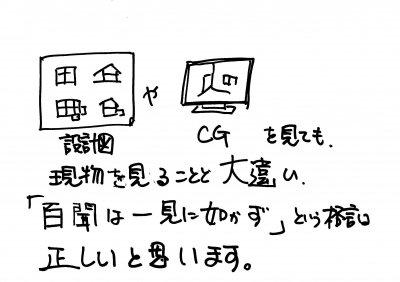 や
設計図 CG を見ても、
現物を見ることと大違い、
「百聞は一見に如かず」という格言は
正しいと思います。